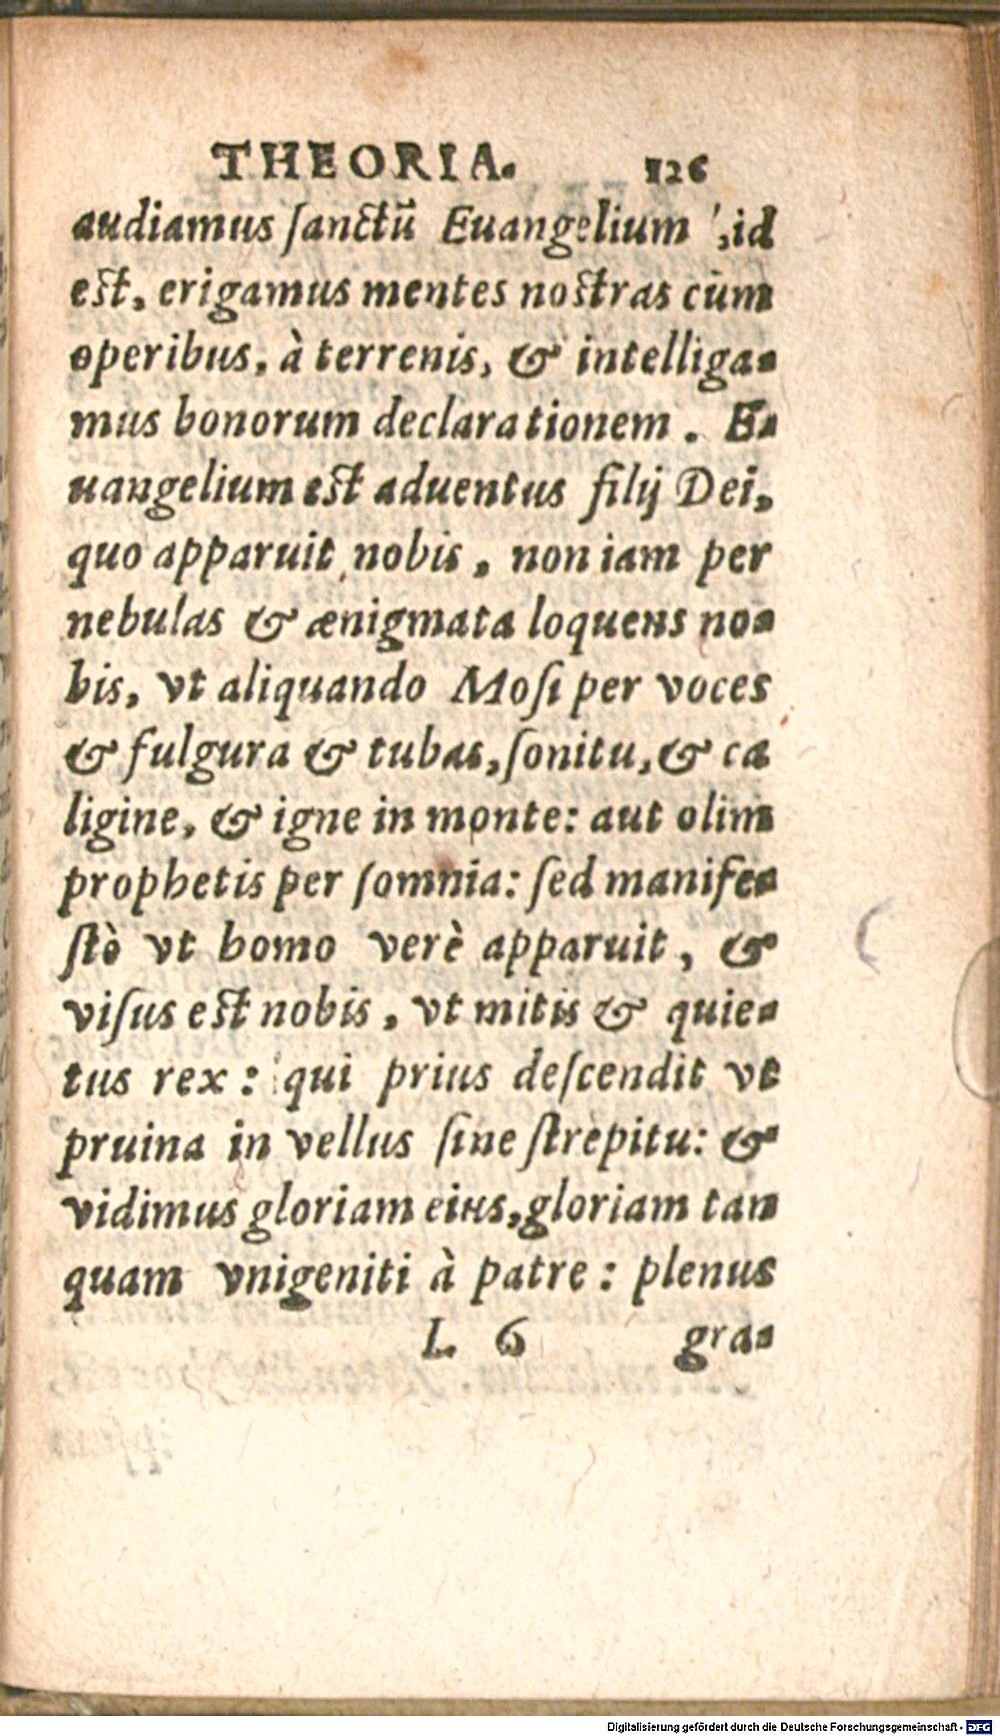 THEORIA. 126
audiamus ſanctū Euangelium ,id
eſt, erigamus mentes noſtras cùm
operibus, à terrenis, & intelliga-
mus bonorum declarationem. E-
uangelium eſt aduentus filij Dei,
quo apparuit nobis, non iam per
nebulas & ænigmata loquens no-
bis, vt aliquando Moſi per voces
& fulgura & tubas, ſonitu, & ca
ligine, & igne in monte: aut olim
prophetis per ſomnia: ſed manife-
ſtè vt homo verè apparuit, &
viſus eſt nobis, vt mitis & quie-
tus rex: qui prius deſcendit vt
pruina in vellus ſine ſtrepitu: &
vidimus gloriam eius, gloriam tan
quam vnigeniti à patre: plenus
L 6 gra-
Digitalisierung gefördert durch die Deutsche Forschungsgemeinschaft - DFG